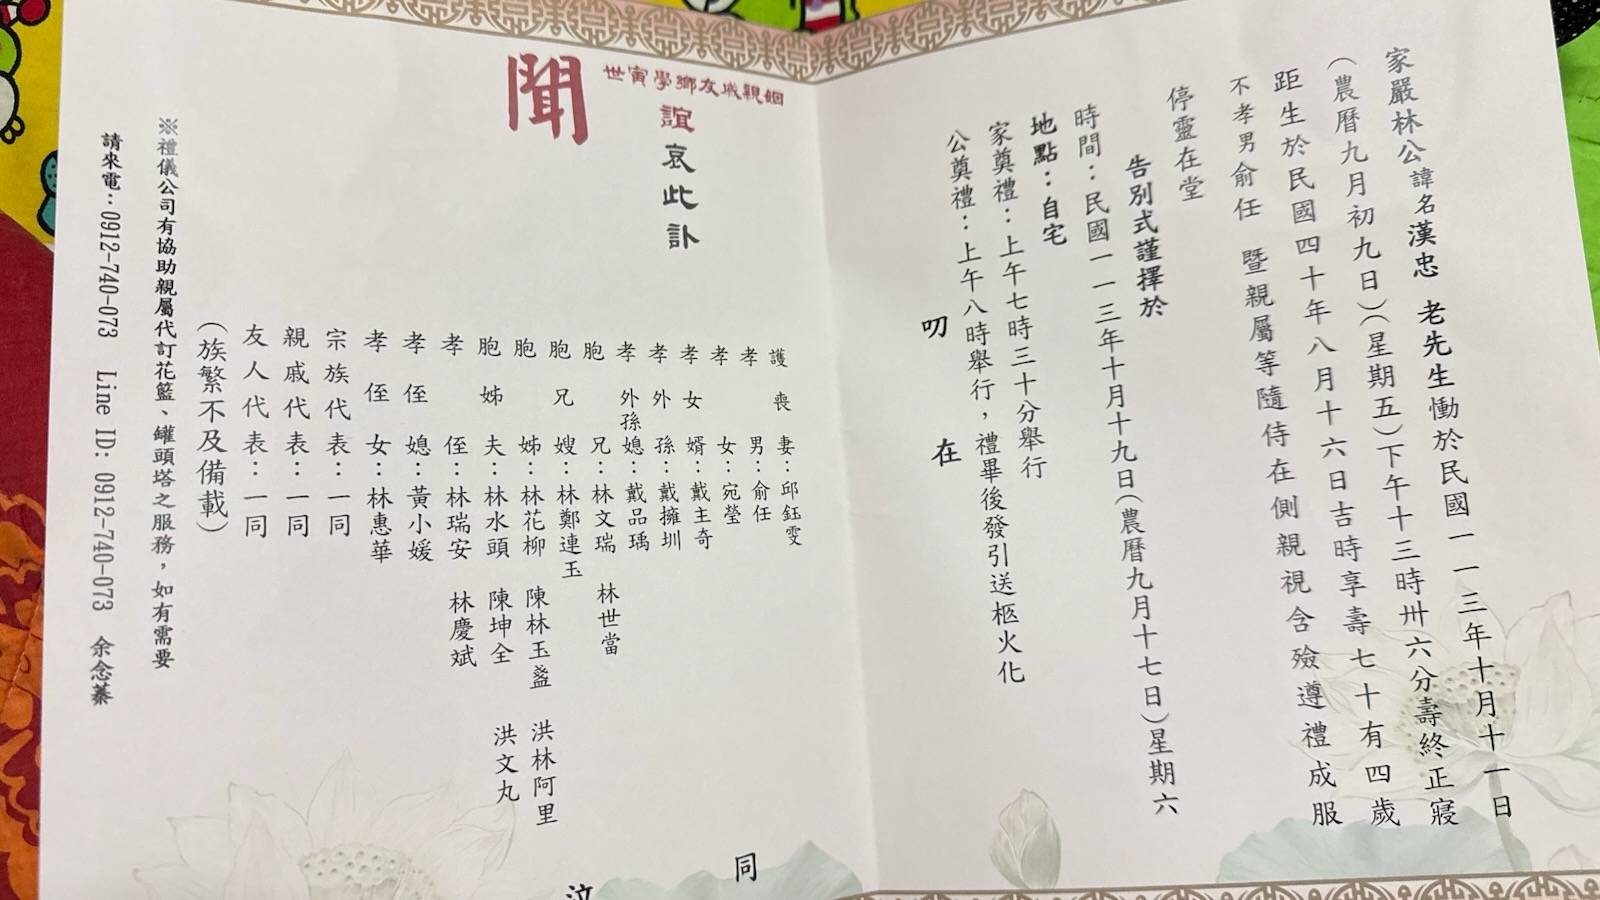 家嚴林公諱名漢忠 老先生慟於民國一一三年十月十一日
(農曆九月初九日)(星期五)下午十三時卅六分壽終正寢
距生於民國四十年八月十六日吉時享壽七十有四歲
不孝男俞任 暨親屬等隨侍在側親視含殮遵禮成服
停靈在堂
告別式謹擇於
時間：民國一一三年十月十九日(農曆九月十七日)星期六
地點：自宅
家奠禮：上午七時三十分舉行
公奠禮：上午八時舉行，禮畢後發引送柩火化
叨 在
姻親戚友鄉學寅世
誼哀此訃
聞
護喪妻：邱鈺雯
孝男：俞任
孝女：宛瑩
孝女婿：戴主奇
孝外孫：戴擁圳
孝外孫媳：戴品瑀
胞兄：林文瑞 林世當
胞兄嫂：林鄭連玉
胞姊：林花柳 陳林玉盞 洪林阿里
胞姊夫：林水頭 陳坤全 洪文丸
孝侄：林瑞安 林慶斌
孝侄媳：黃小媛
孝侄女：林惠華
宗族代表：一同
親戚代表：一同
友人代表：一同
(族繁不及備載)
同
泣
※禮儀公司有協助親屬代訂花籃、罐頭塔之服務，如有需要
請來電：0912-740-073 Line ID: 0912-740-073 余念蓁